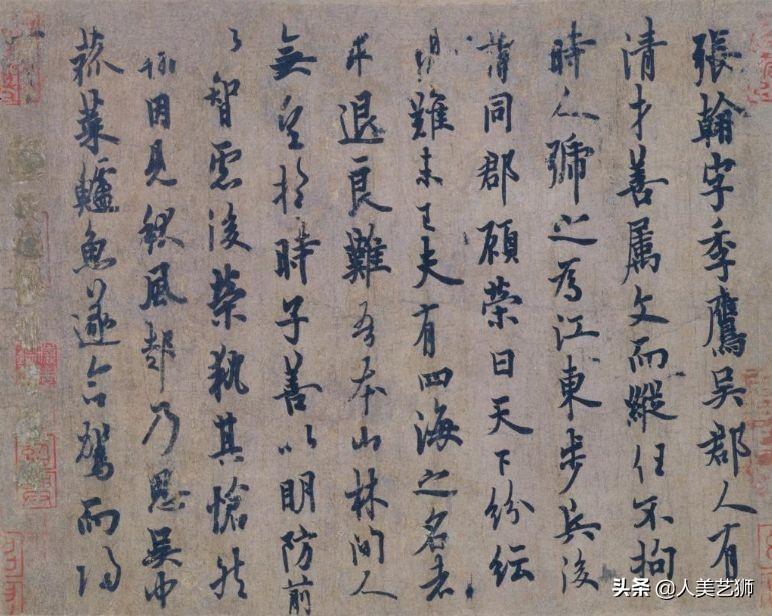 張翰字季鷹吳郡人有
清才善属文而縱任不拘
時人號之為江東步兵後
謂同郡顧榮曰天下紛紜
難未已夫有四海之名者
求退良難吾本山林間人
無望於時子善以明防前
以智慮後榮執其愴然
翰因見秋風起乃思吳中
菰菜鱸魚遂命駕而歸
头条 @人美艺狮